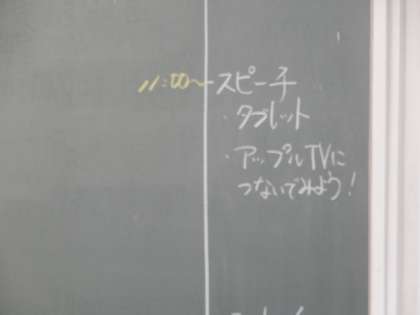 11:00〜 スピーチ
・タブレット
・アップルTVに
つないでみよう!